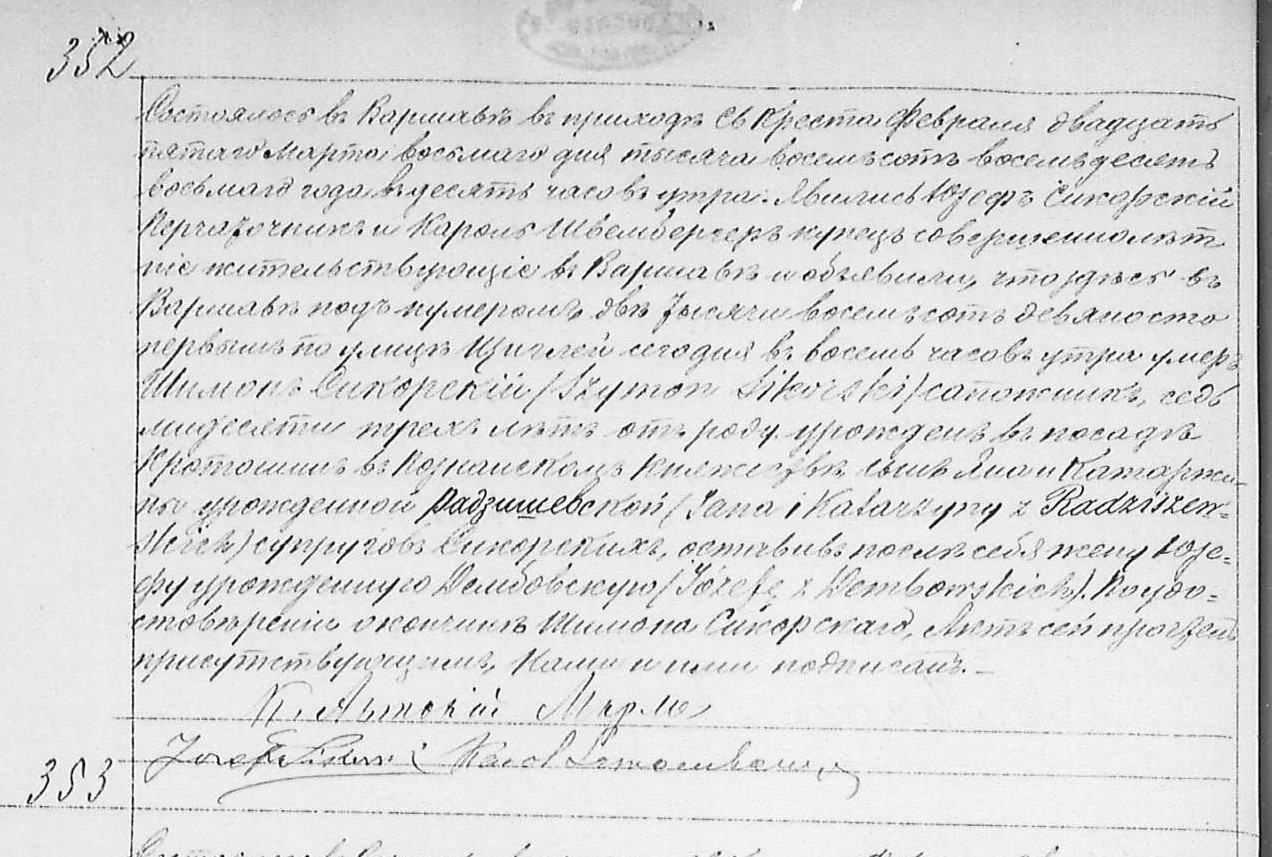 352
Состоялось въ Варшавѣ въ приходѣ Св Креста Февраля двадцать
пятаго Марта восьмаго дня тысяча восемьсотъ восемьдесятъ
восьмаго года въ десять часовъ утра. Явились Юзефъ Сикорскій
Перчаточникъ и Кароль Швембергеръ купецъ совершеннолѣт
ніе жительствующіе въ Варшавѣ и объявили, что здѣсь въ
Варшавѣ подъ нумеромъ двѣ тысячи восемьсотъ девяносто
первымъ по улицѣ Щиглей сегодня въ восемь часовъ утра умеръ
Шимонъ Сикорскій /Szymon Sikorski/ сапожникъ, седь
мидесяти трехъ лѣтъ отъ роду урожденъ въ посадѣ
Кротошинъ въ Познанскомъ Княжествѣ сынъ Яна и Катаржи-
ны урожденной Радзишевской (Jana i Katarzyny z Radziszew-
skich) супруговъ Сикорскихъ, оставивъ послѣ себя жену Юзе-
фу урожденную Дембовскую (Józefę z Dembowskich). По удо-
стовѣреніи о кончинѣ Шимона Сикорскаго, Актъ сей прочтенъ
присутствующимъ, Нами и ими подписанъ.
353